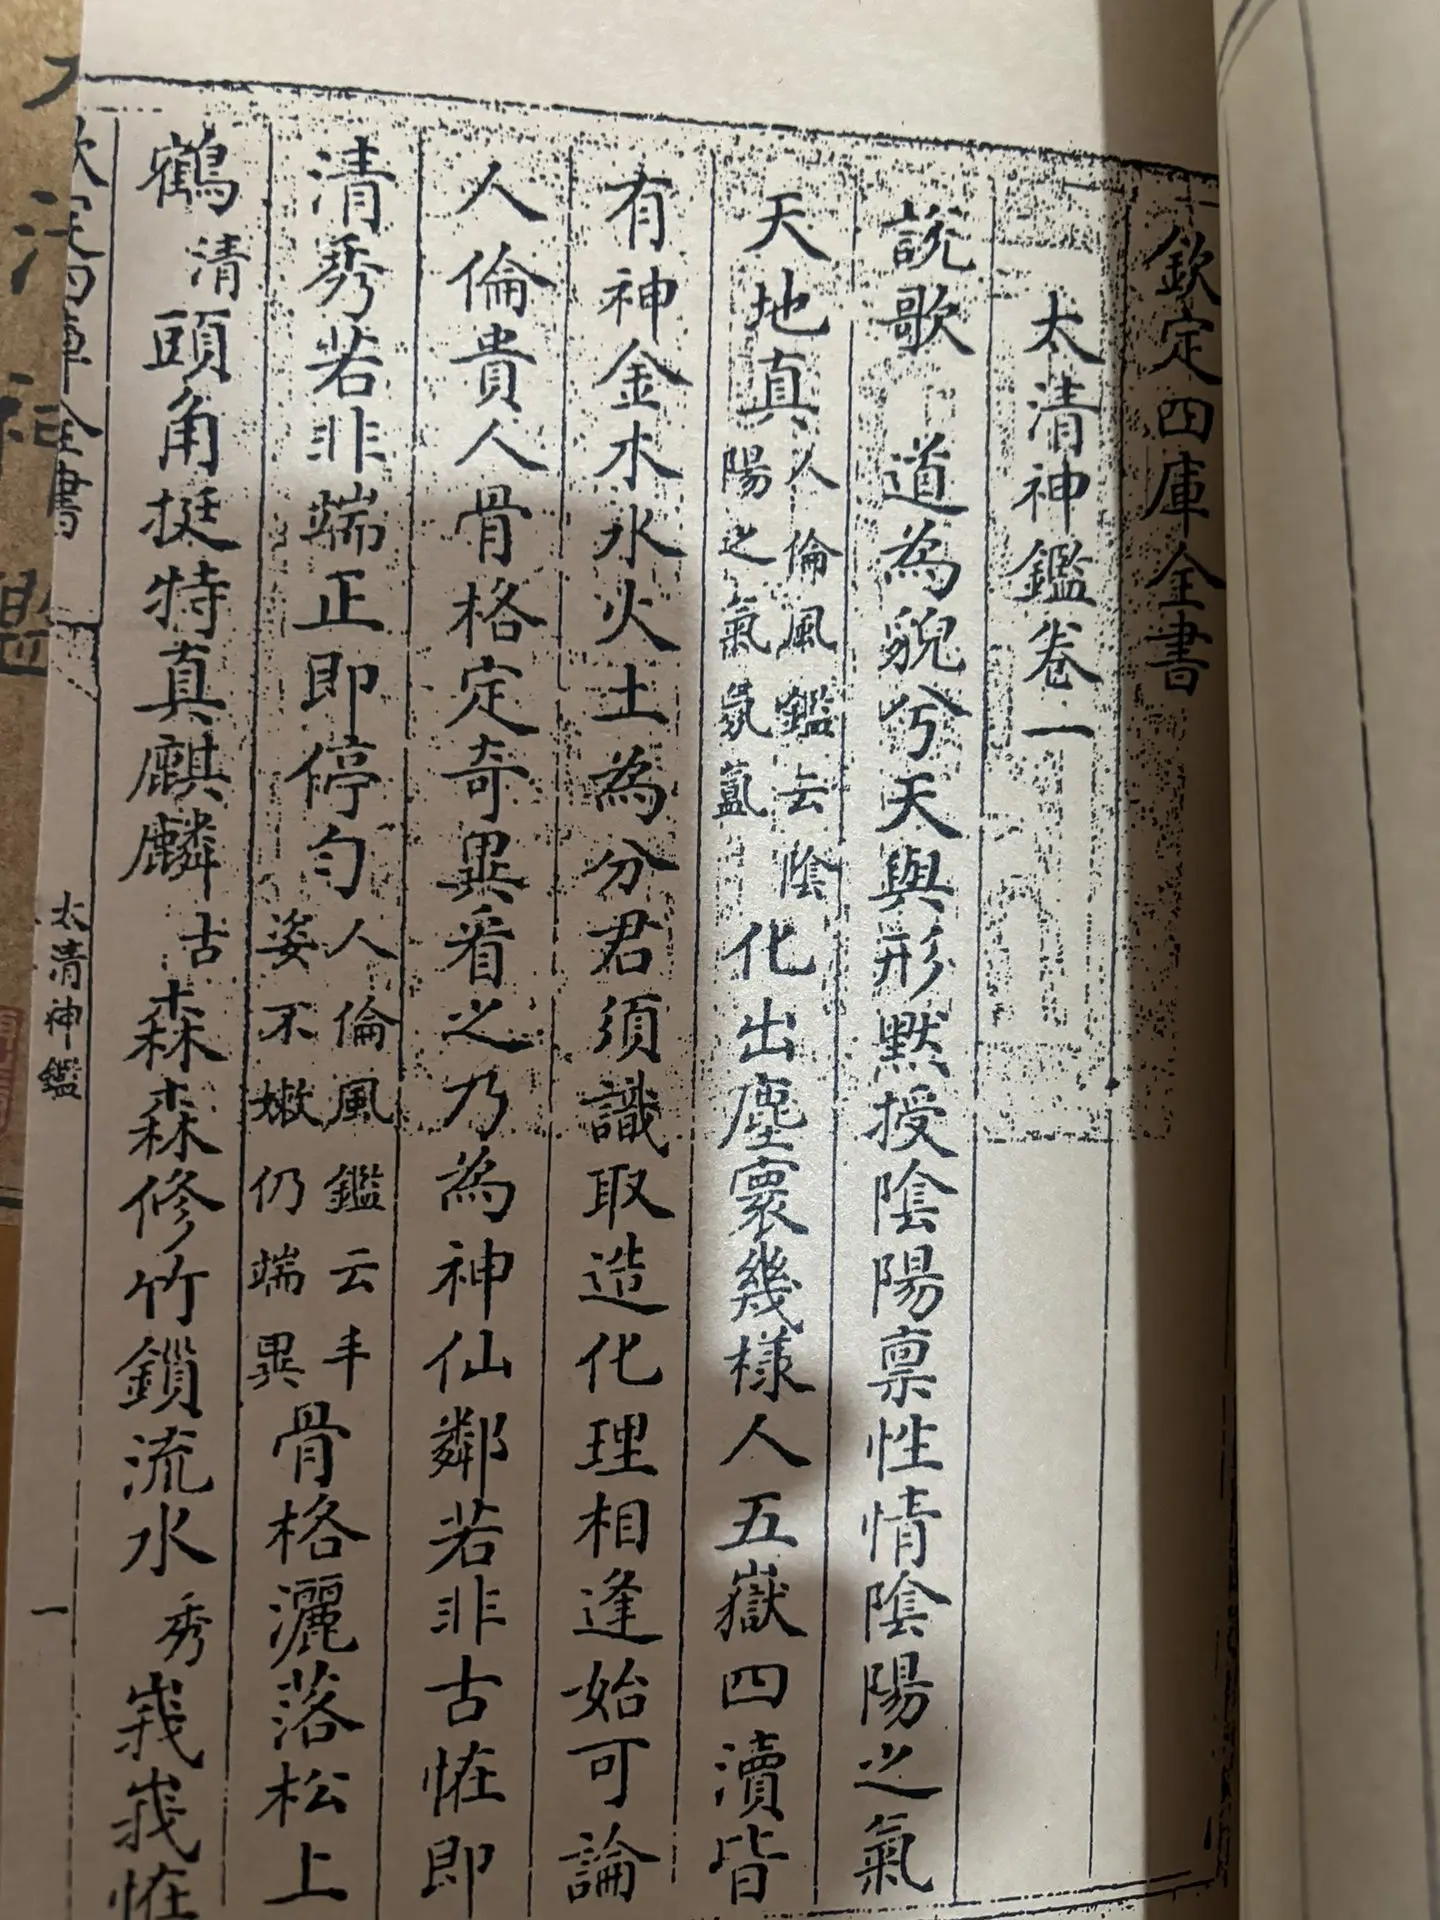 欽定四庫全書
太清神鑑卷一
說歌
道為貌兮天與形默授陰陽禀性情陰陽之氣
天地真人倫風鑑云陰陽之氣氛氳化出塵寰幾樣人五嶽四瀆皆
有神金木水火土為分君須識取造化理相逢始可論
人倫貴人骨格定奇異看之乃為神仙鄰若非古恠即
清秀若非端正即停勻人倫風鑑云丰姿不嫩仍端異骨格灑落松上
鶴清頭角挺特真麒麟古森森修竹鎖流水秀峩峩恠
太清神鑑
一